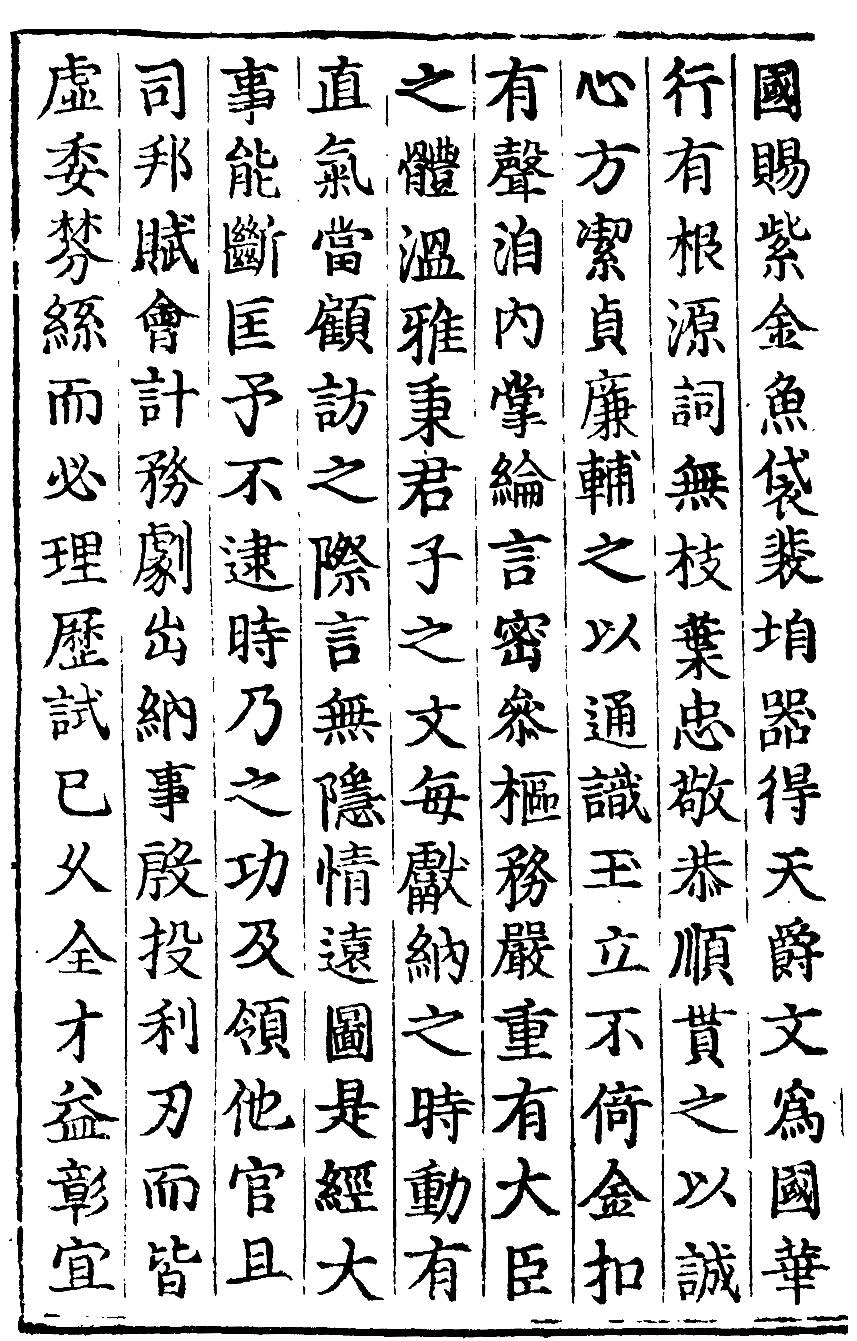 國賜紫金魚袋裴垍器得天爵文爲國華
行有根源詞無枝葉忠敬恭順貫之以誠
心方潔貞廉輔之以通識玉立不倚金扣
有聲洎内掌綸言密叅樞務嚴重有大臣
之體溫雅秉君子之文每獻納之時動有
直氣當顧訪之際言無隱情遠圖是經大
事能斷匡予不逮時乃之功及領他官且
司邦賦會計務劇出納事殷投利刃而皆
虛委棼絲而必理歷試已久全才益彰宜